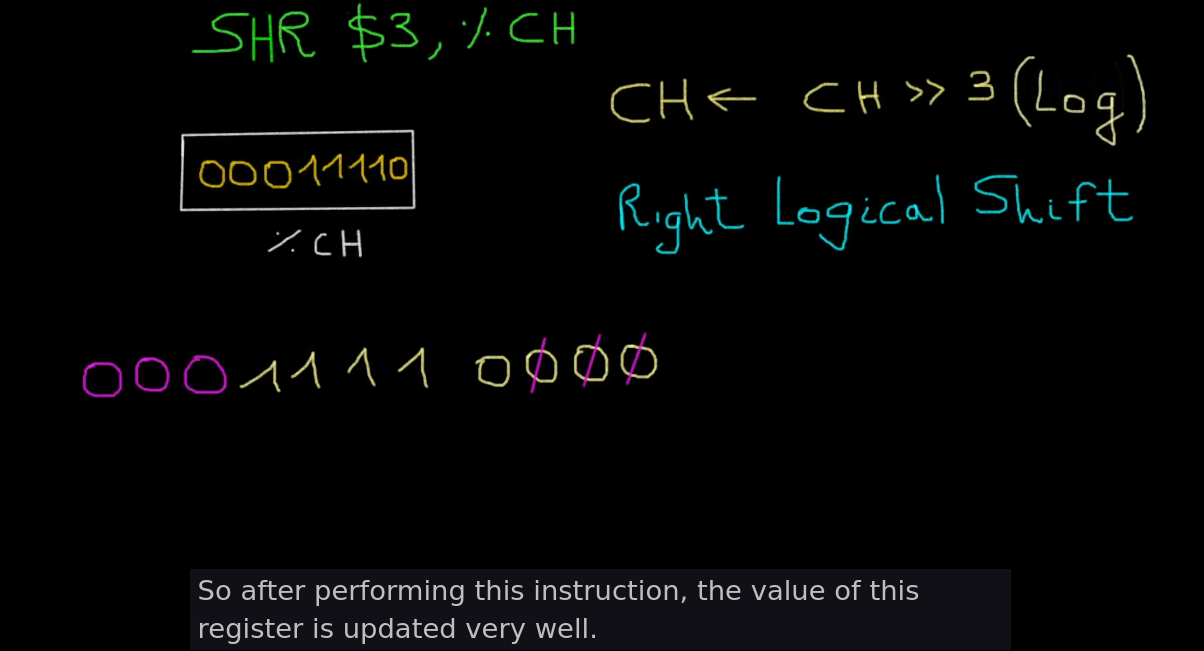 SHR $3, % CH
CH ← CH >> 3 (Log)
00011110
% CH
Right Logical Shift
0001111 0000
So after performing this instruction, the value of this
register is updated very well.